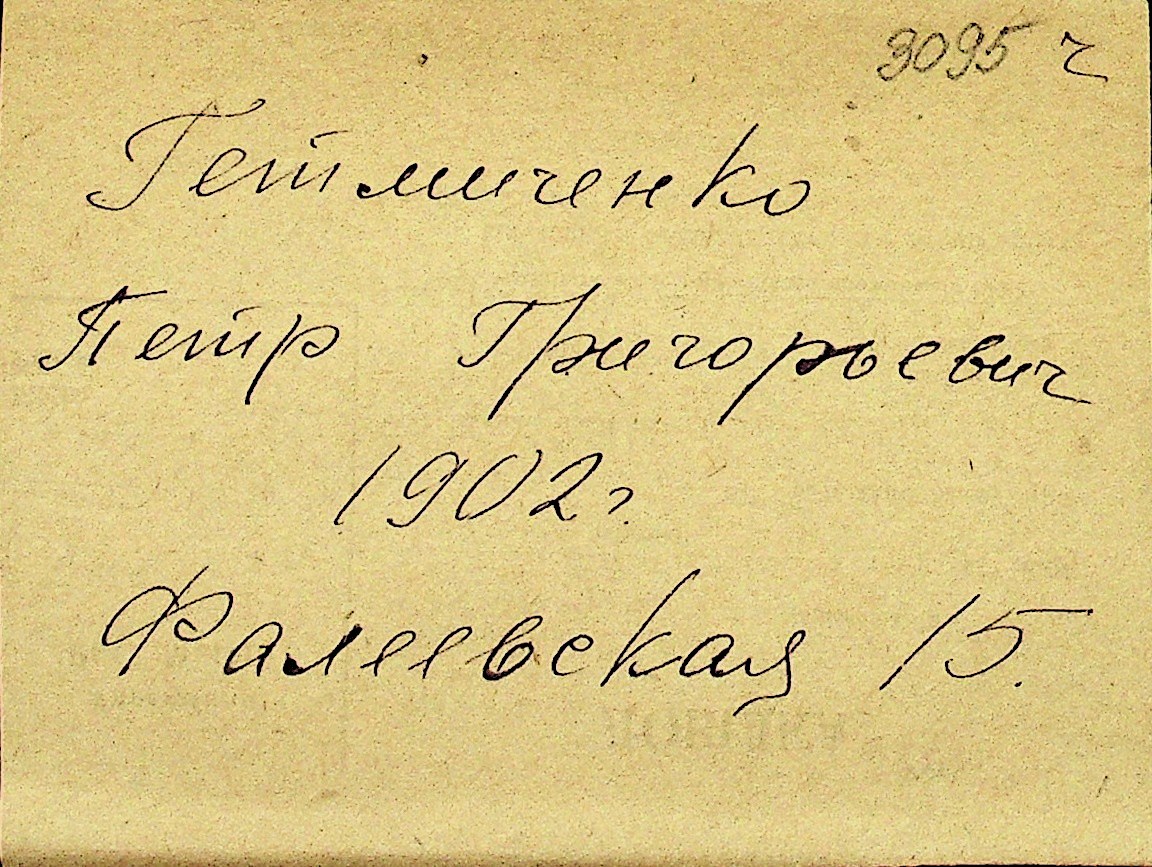 3095 ч
Гетмиченко
Петр Григорьевич
1902 г.
Фалеевская 15.